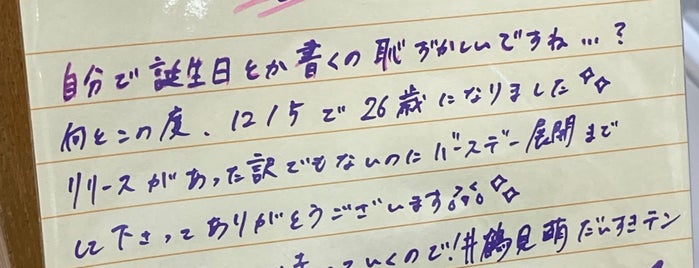 自分で誕生日とか書くの恥ずかしいですね…?
何とこの度、12/5で26歳になりました✧✧
リリースがあった訳でもないのにバースデー展開まで
して下さってありがとうございます
っていくので!#鶴見萌だいすきテン